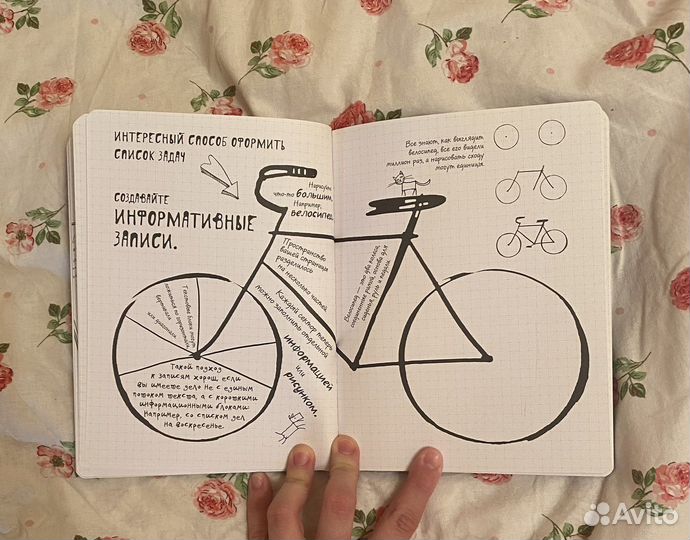 ИНТЕРЕСНЫЙ СПОСОБ ОФОРМИТЬ
СПИСОК ЗАДАЧ
СОЗДАВАЙТЕ
ИНФОРМАТИВНЫЕ
ЗАПИСИ.
Нарисуйте
что-то большим.
Например,
велосипед.
Пространство
вашей страницы
разделилось
на несколько частей.
Каждый сектор теперь
можно заполнить отдельной
информацией
или
рисунком.
Текстовые блоки могут
ложиться по горизонтали,
вертикали
или диагонали.
Такой подход
к записям хорош, если
вы имеете дело не с единым
потоком текста, а с короткими
информационными блоками.
Например, со списком дел
на воскресенье.
Все знают, как выглядит
велосипед, все его видели
миллион раз, а нарисовать сходу
могут единицы.
Велосипед — это два колеса,
соединенных рамой, основа для
сидения, руля и педали.
Avito